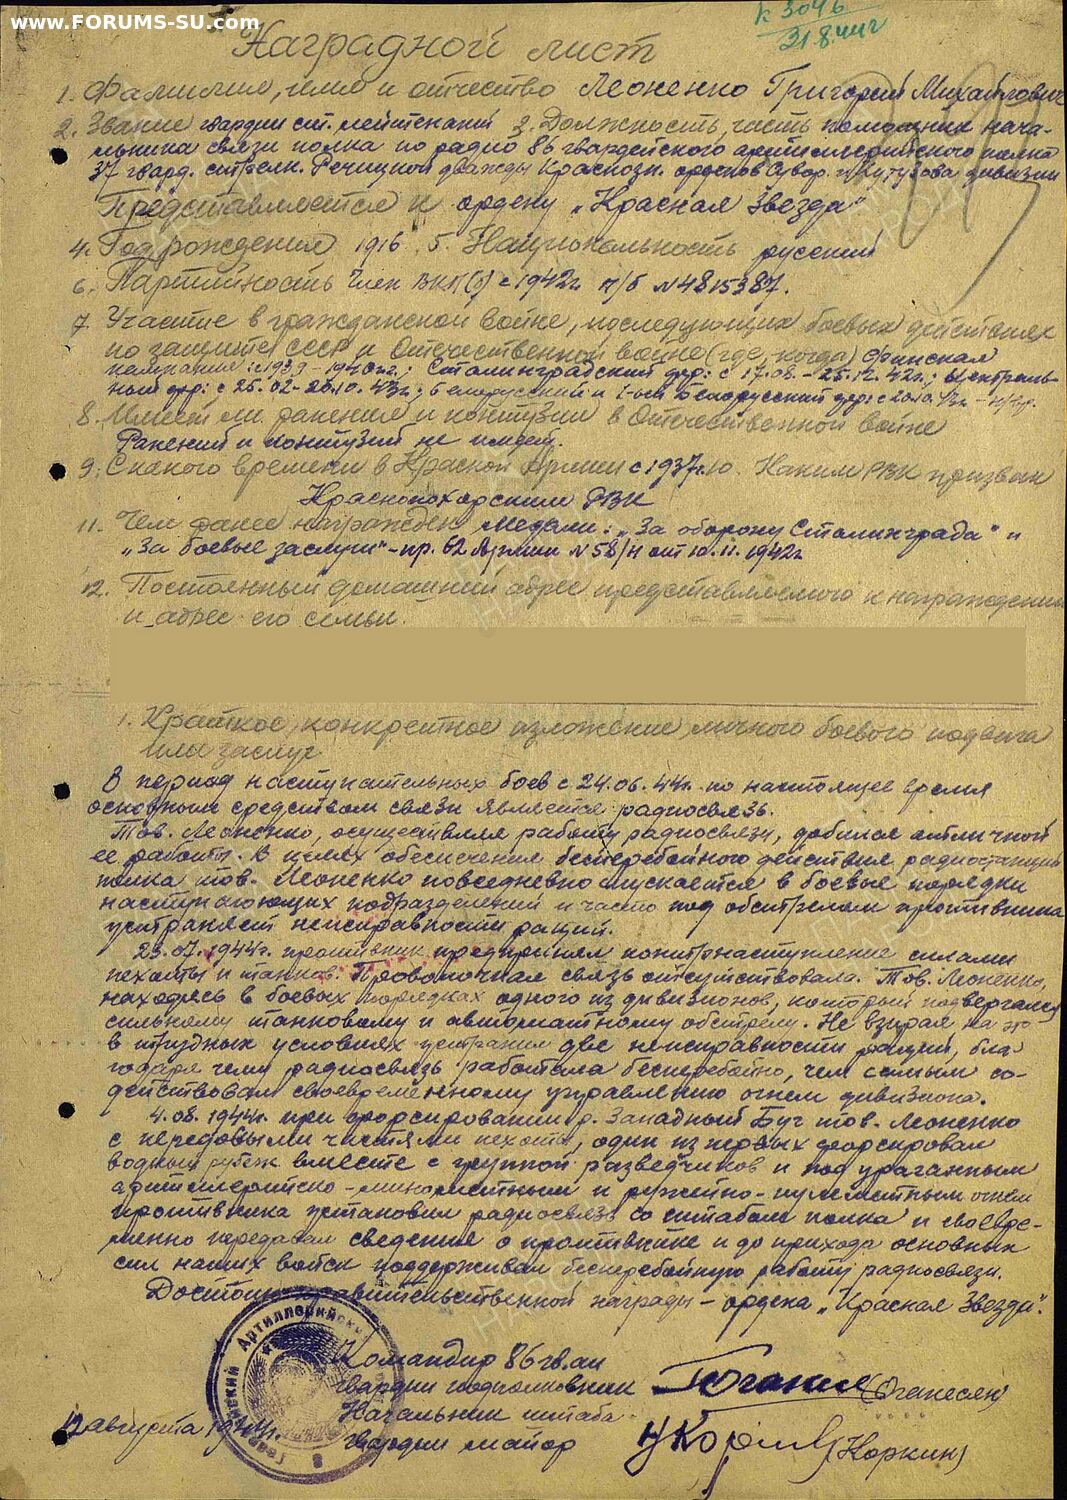 www.FORUMS-SU.com
к 3046
31.8.44г
Наградной лист
1. Фамилия, имя и отчество Леоненко Григорий Михайлович
2. Звание гвардии ст. лейтенант 3. Должность, часть помощник нача-
льника связи полка по радио 86 гвардейского артиллерийского полка
37 гвард. стрелк. Речицкой дважды Краснозн. орденов Сувор. и Кутузова дивизии
Представляется к ордену „Красная Звезда"
4. Год рождения 1916 5. Национальность русский
6. Партийность Член ВКП(б) с 1942г п/б №4815387.
7. Участие в гражданской войне, последующих боевых действиях
по защите СССР и Отечественной войне (где, когда) Финская
кампания: с 1939 - 1940гг; Сталинградский фр: с 17.08. - 25.12.42г.; Централь-
ный фр: с 25.02 - 20.10.43г; Белорусский и 1-ый Белорусский фр: с 20.10.43г -
8. Имеет ли ранения и контузии в Отечественной войне
Ранений и контузий не имеет.
9. С какого времени в Красной Армии с 1937г. 10. Каким РВК призван
Краснопахорским РВК
11. Чем ранее награжден медали: „За оборону Сталинграда" и
„За боевые заслуги" - пр. 62 Армии №58/н от 10.11.1942г
12. Постоянный домашний адрес представляемого к награждению
и адрес его семьи.
1. Краткое, конкретное изложение личного боевого подвига
или заслуг
В период наступательных боев с 24.06.44г. по настоящее время
основным средством связи является радиосвязь.
Тов. Леоненко, осуществляя работу радиосвязи, добился отличной
ее работы. В целях обеспечения бесперебойного действия радиостанции
полка тов. Леоненко повседневно спускается в боевые порядки
наступающих подразделений и часто под обстрелом противника
устраняет неисправности раций.
23.07.1944г. противник предпринял контрнаступление силами
пехоты и танков. Проволочная связь отсутствовала. Тов. Леоненко,
находясь в боевых порядках одного из дивизионов, который подвергался
сильному танковому и автоматному обстрелу. Не взирая на это
в трудных условиях устранил две неисправности раций, бла
годаря чему радиосвязь работала бесперебойно, чем самым со-
действовал своевременному управлению огнем дивизиона.
4.08.1944г. при форсировании р. Западный Буг тов. Леоненко
с передовыми частями пехоты, один из первых форсировал
водный рубеж вместе с группой разведчиков и под ураганным
артиллерийско-минометным и ружейно-пулеметным огнем
противника установил радиосвязь со штабом полка и своевре-
менно передавал сведения о противнике и до прихода основных
сил наших войск поддерживал бесперебойную работу радиосвязи.
Достоин правительственной награды - ордена „Красная Звезда".
Командир 86 гв. ап
гвардии подполковник (Оганесян)
Начальник штаба
гвардии майор (Коркин)
12 августа 1944г.
Артиллерийский